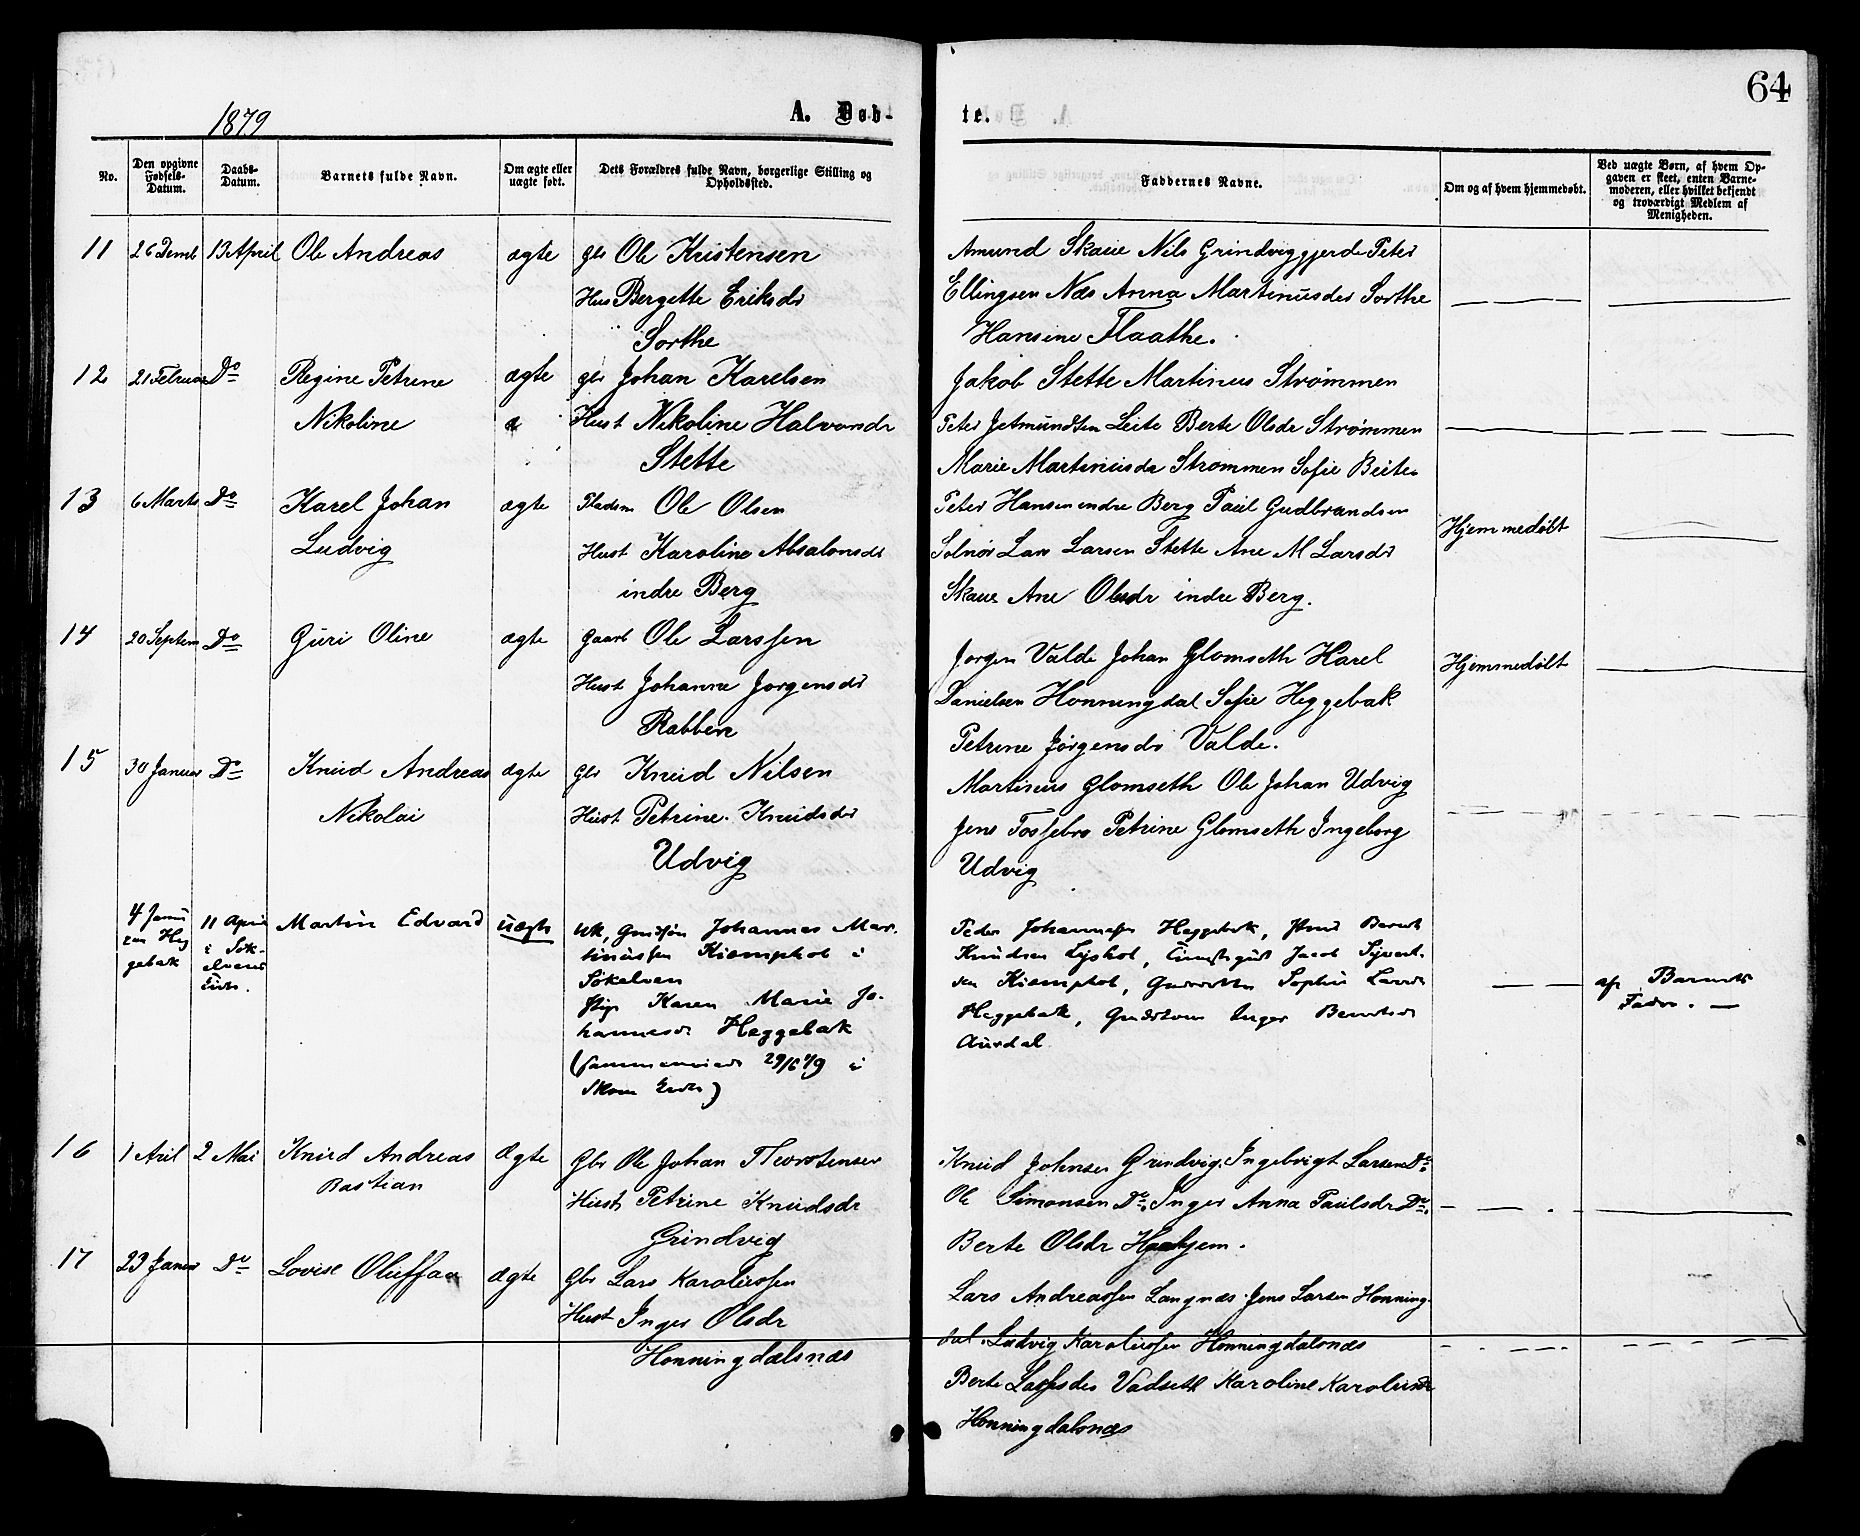 64
1879
A. Døb-
te.
No.
Den opgivne Fødsels-Datum.
Daabs-Datum.
Barnets fulde Navn.
Om ægte eller uægte født.
Dets Forældres fulde Navn, borgerlige Stilling og Opholdssted.
Faddernes Navne.
Om og af hvem hjemmedøbt.
Ved uægte Børn, af hvem Opgaven er skeet, enten Barnemoderen, eller hvilket bekjendt og troværdigt Medlem af Menigheden.
11 26 Demb 13 April Ole Andreas ægte gbr Ole Kristensen
Hus Bergitte Eriksdr
Sorthe
Amund Skaue Nils Grindviggjerde Peter
Ellingsen Næs Anna Martinusdr Sorthe
Hansine Flaathe.
12 21 Februar Do Regine Petrine ægte gbr Johan Karelsen
Nikoline Hust Nikoline Halvorsdr
Stette
Jakob Stette Martinus Strømmen
Peter Jetmundsen Leite Berte Olsdr Strømmen
Marie Martinusdr Strømmen Sofie Beite
13 6 Marts Do Karel Johan ægte Pladsm Ole Olsen
Ludvig Hust Karoline Absalonsdr
indre Berg
Peter Hansen indre Berg Paul Gudbrandsen
Solnør Lars Larsen Stette Ane M Larsdr
Skaue Ane Olsdr indre Berg.
Hjemmedøbt
14 20 Septem Do Guri Oline ægte Gaarb Ole Larssen
Hust Johanne Jørgensdr
Rabben
Jørgen Valde Johan Glomseth Karel
Danielsen Honningdal Sofie Heggebak
Petrine Jørgensdr Valde.
Hjemmedøbt
15 30 Januar Do Knud Andreas ægte gbr Knud Nilsen
Nikolai Hust Petrine Knudsdr
Udvig
Martinus Glomseth Ole Johan Udvig
Jens Fossebro Petrine Glomseth Ingeborg
Udvig
4 Janu 11 April Martin Edvard uægte Uk, Grdsøn Johannes Mar-
tinussen Kiemphol i
Søkelven
Pige Karen Marie Jo-
hannesdr Heggebak
29/6 79 i
Peder Johannessen Heggebak, Bernt
Knudsen Lyshol, Jacob Sivert-
sen Kiemphol, Sophie Larsdr
Heggebak, Inger Berntsdr
Aurdal
af Barnets
Fader.
16 1 Aril 2 Mai Knud Andreas Ægte Gbr Ole Johan Thorstensen
Bastian Hust Petrine Knudsdr
Grindvig
Knud Johnsen Grindvig. Ingebrigt Larsen Do
Ole Simonsen Do. Inger Anna Paulsdr Do.
Berte Olsdr Haahjem.
17 23 Januar Do Lovise Oluffaa ægte Gbr Lars Karolussen
Hust Inger Olsdr
Honningdalsnæs
Lars Andreassen Langnæs. Jens Larsen Honning-
dal. Ludvig Karolussen Honningdalsnæs
Berte Larsdr Vadseth Karoline Karolusdr
Honningdalsnæs